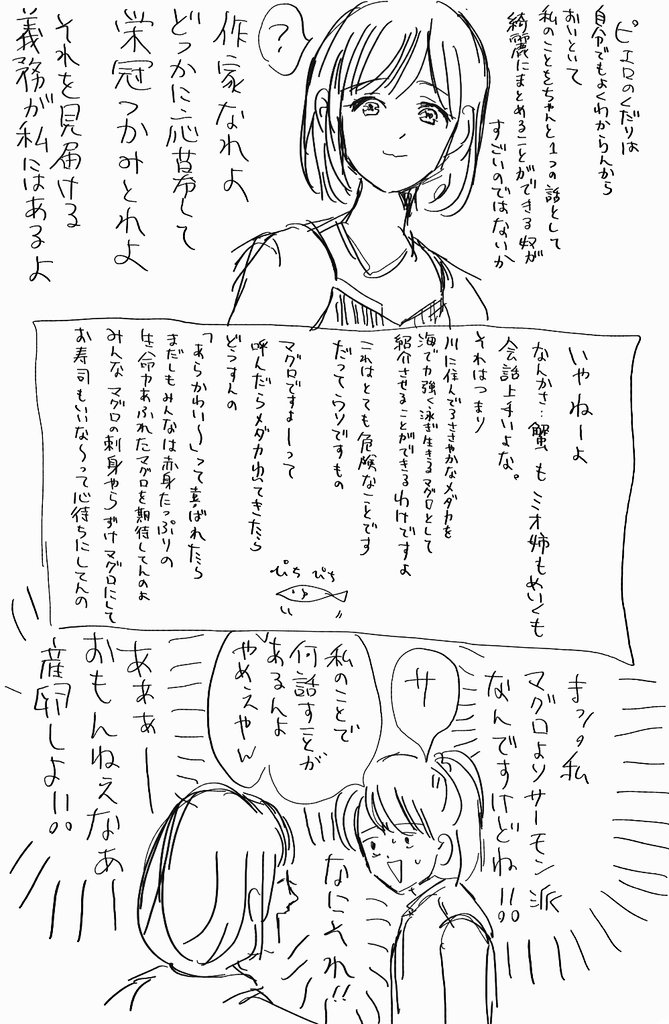 ピエロのくだりは
自分でもよくわからんから
おいといて
私のことをちゃんと1つの話として
綺麗にまとめることができる奴が
すごいのではないか
?
作家なれよ
どっかに応募して
栄冠つかみとれよ
それを見届ける
義務が私にはあるよ
いやねーよ
なんかさ…蟹もミオ姉もめいくも
会話上手いよな。
それはつまり
川に住んでるささやかなメダカを
海で力強く泳ぎ生きるマグロとして
紹介させることができるわけですよ
これはとても危険なことです
だってウソですもの
マグロですよーって
呼んだらメダカ出てきたら
どうすんの
「あらかわい〜」って喜ばれたら
まだしもみんなは赤身たっぷりの
生命力あふれたマグロを期待してんのよ
みんなマグロの刺身やらづけマグロにして
お寿司もいいな〜って心待ちにしてんの
ぴち ぴち
まっ、私
マグロよりサーモン派
なんですけどね!!
サ
私のことで
何話すことが
あるんよ
やめえやん
なにそれ!!
あああー
おもんねえなあ
産卵しよ!!